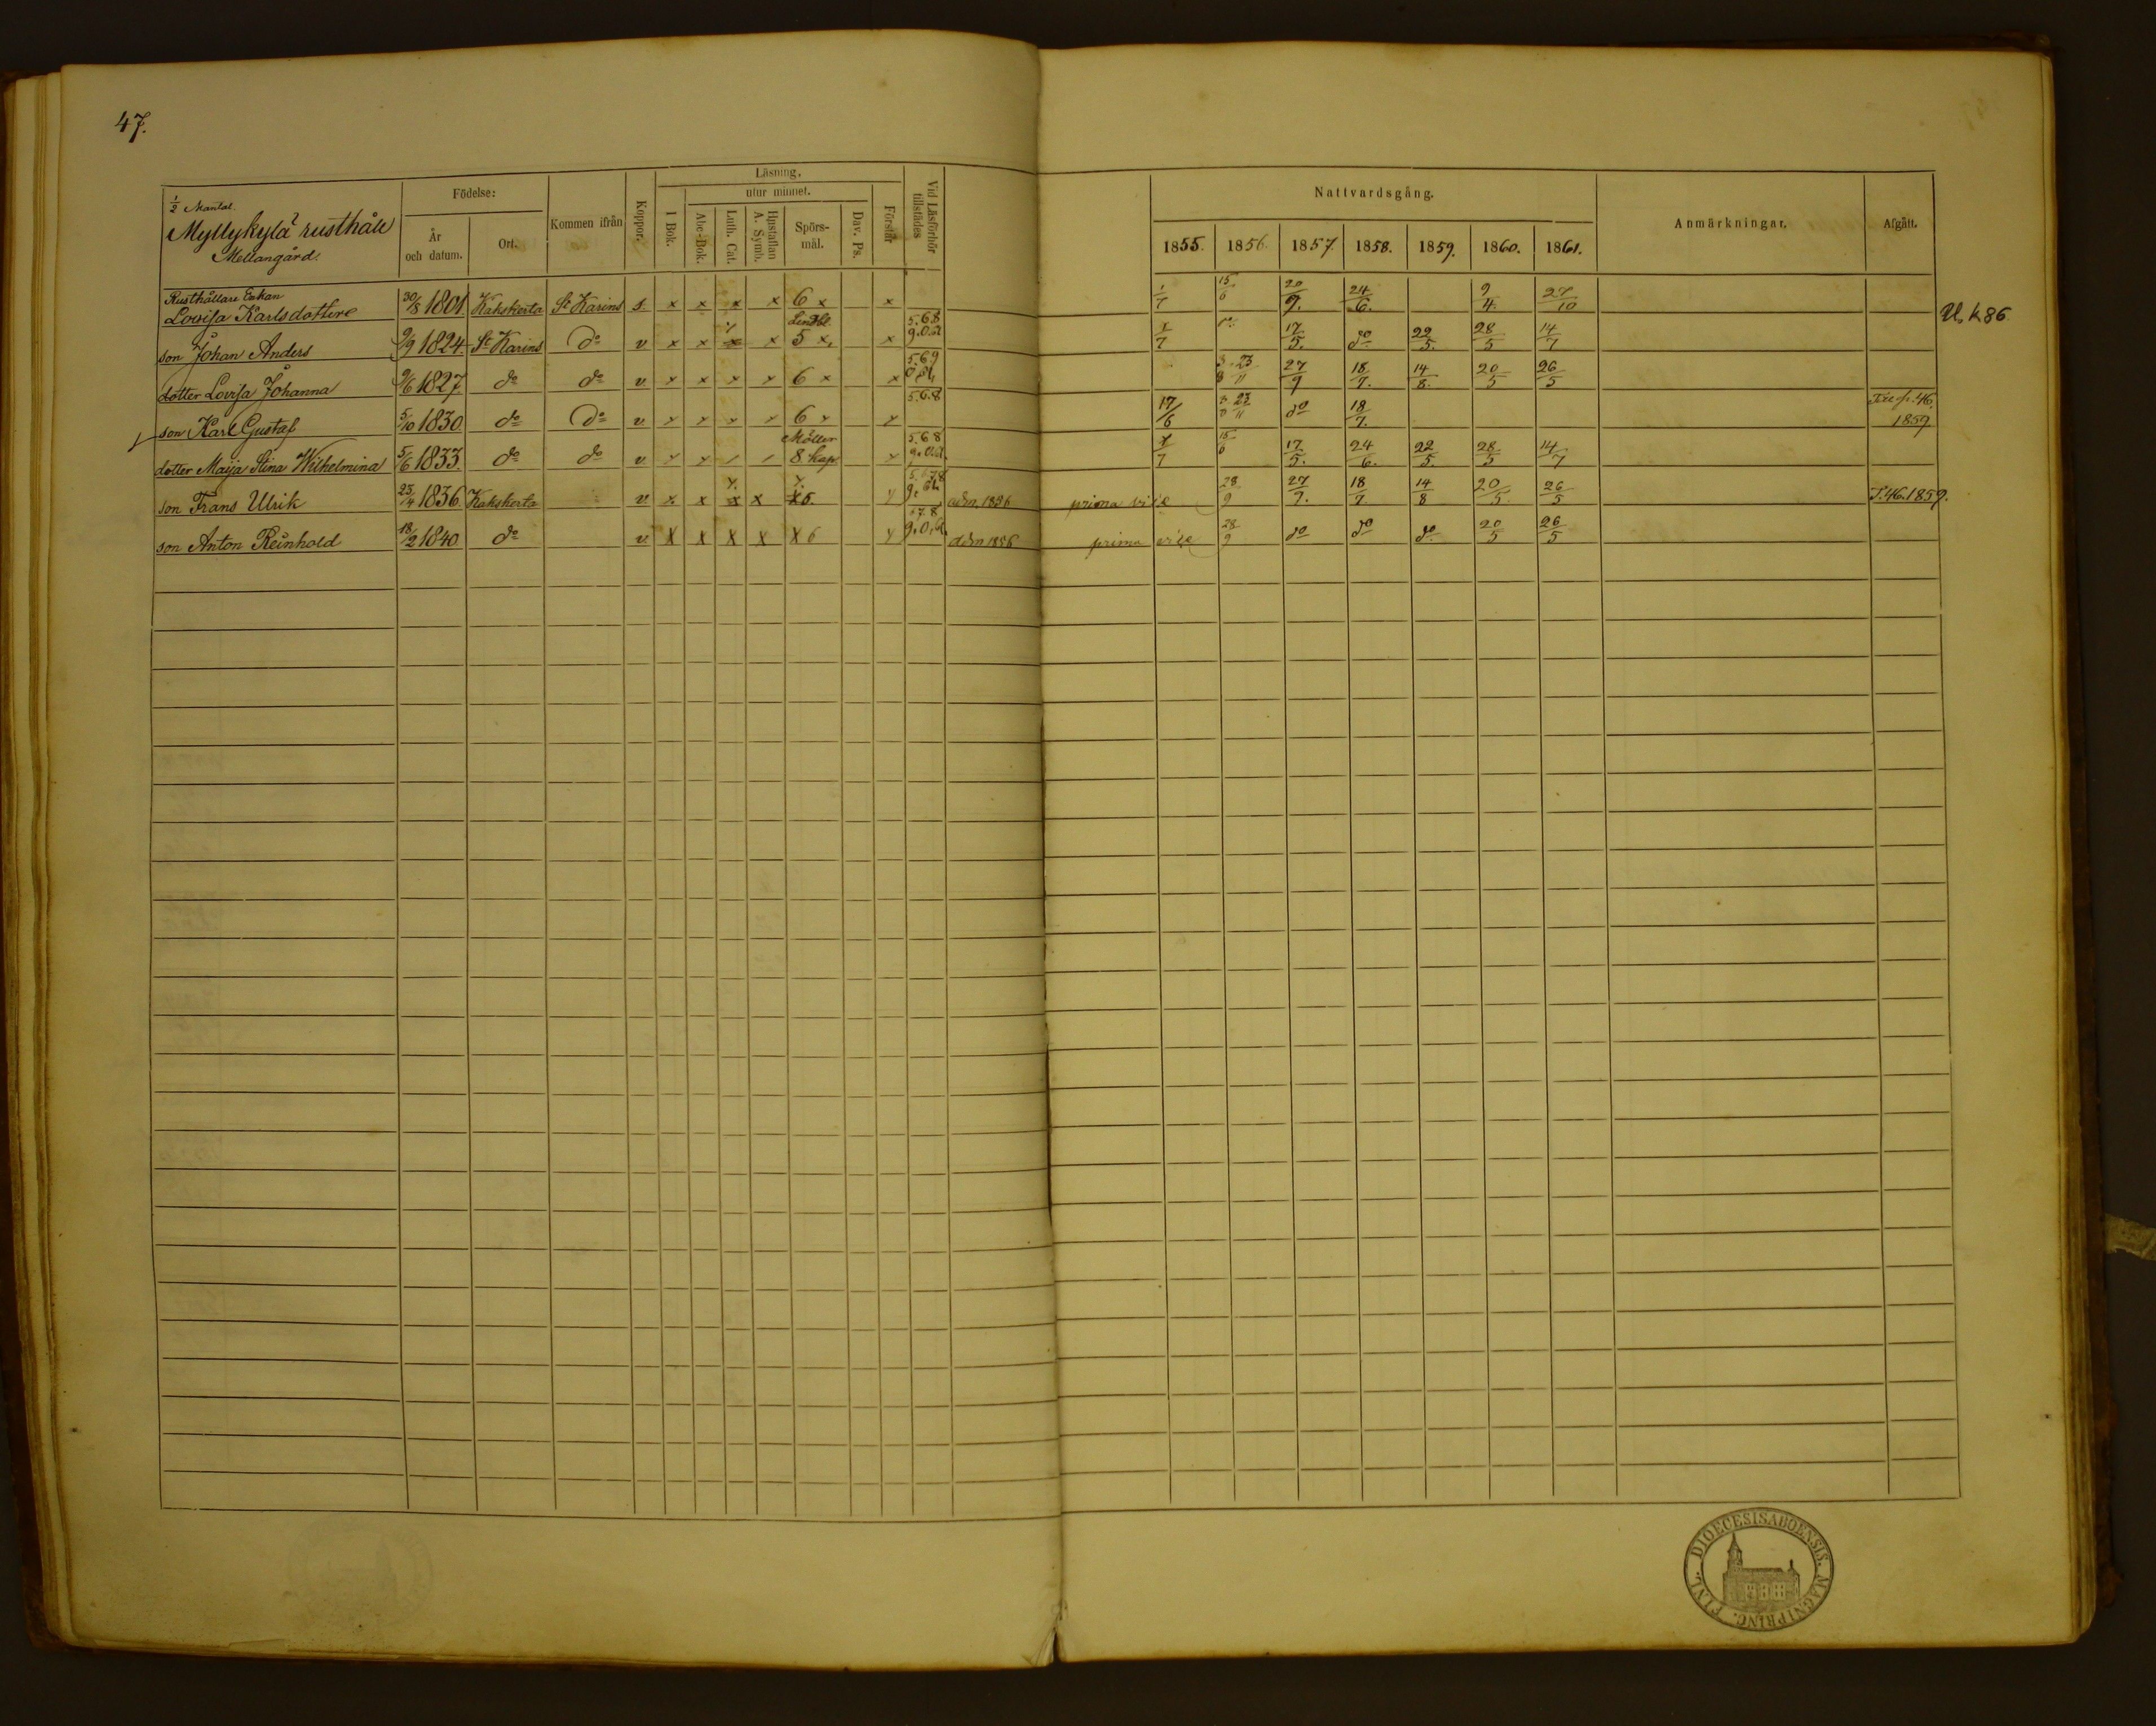 47.
1/2 Mantal.
Myllykylä rusthåll
Mellangård.
Födelse:
År och datum.
Ort.
Kommen ifrån
Koppor.
Läsning.
I Bok.
utur minnet.
Abc-Bok.
Luth. Cat.
Hustaflan A. Symb.
Spörs-mål.
Dav. Ps.
Förstår
Vid Läsförhör tillstädes
Nattvardsgång.
1855. 1856. 1857. 1858. 1859. 1860. 1861.
Anmärkningar.
Afgått.
Rusthållare Enkan
Lovisa Karlsdotter 30/8 1801 Kakskerta St Karins s. x x x x 6 x x 1/7 15/6 20/9. 24/6. 9/4. 27/10
U, k 86
Lindbl. 5.6.8
son Johan Anders 9/9 1824. St Karins do v x x x x 5 x x 9.0. 1/7 do 17/5. do 22/5. 28/5 14/7
5.6.9
dotter Lovisa Johanna 9/6 1827 do do v x x x x 6 x x 23/11 27/9 18/7. 14/8. 20/5 26/5
5.6.8
son Karl Gustaf 5/10 1830 do do v x x x x 6 x x 17/6 23/11 do 18/7. p. 46. 1859
Möller 5.6.8
dotter Maija Stina Wilhelmina 5/6 1833. do do v x x / / 8 kap. x 1/7 15/6 17/5. 24/6. 22/5. 28/5 14/7
son Frans Ulrik 25/4 1836. Kakskerta v x x x x x 6. x adm, 1856 prima vice 28/9 27/9. 18/7 14/8 20/5. 26/5 T. 46. 1859.
son Anton Reinhold 18/2 1840 do v x x x x x 6 x adm 1856 prima vice 28/9 do do do 20/5 26/5
DIOECESIS ABOENSIS. MAGNI PRINC. FINL.